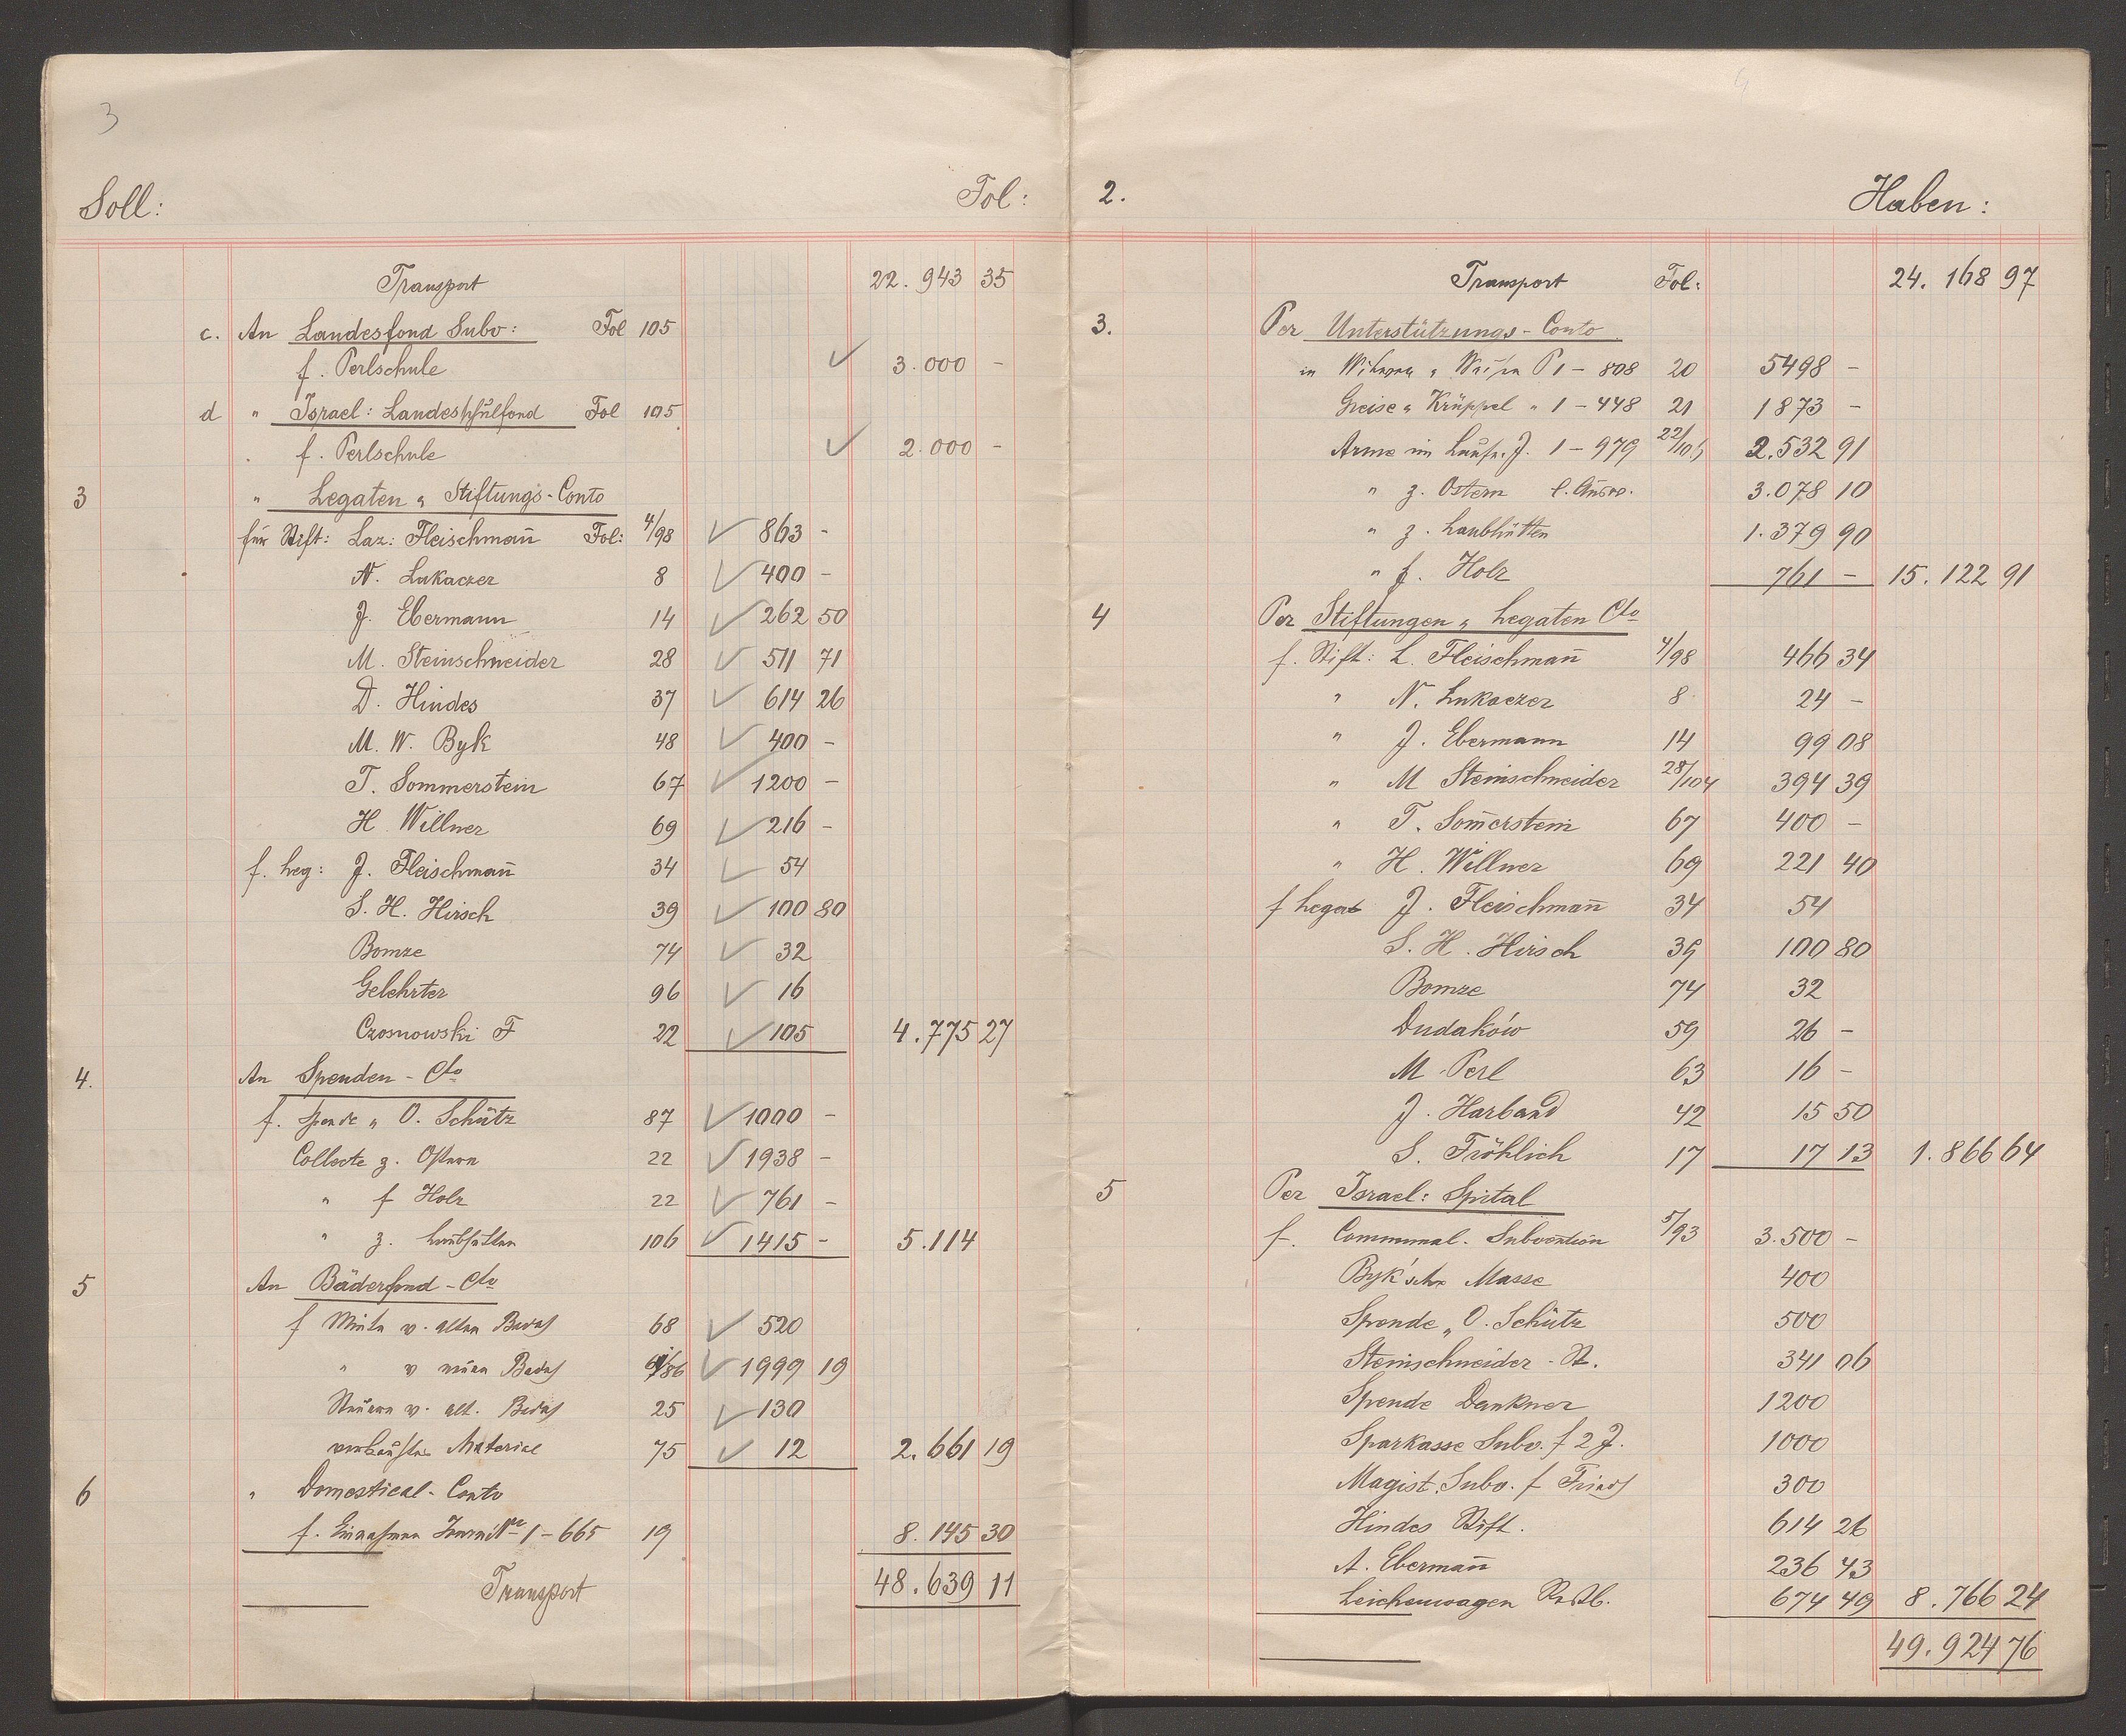 3
Soll: Fol:
Transport 22.943 35
c. An Landesfond Subv: Fol 105
f. Perlschule 3.000 -
d " Israel: Landesschulfond Fol 105
f. Perlschule 2.000 -
3 " Legaten & Stiftungs-Conto
für Stift: Laz: Fleischman̄ Fol: 4/98 863 -
N. Lukaczer 8 400 -
J. Ebermann 14 262 50
M. Steinschneider 28 511 71
D. Hindes 37 614 26
M. W. Byk 48 400 -
T. Sommerstein 67 1200 -
H. Willner 69 216 -
f. Leg: J. Fleischman̄ 34 54
S. H. Hirsch 39 100 80
Bomze 74 32
Gelehrter 96 16
Czosnowski F 22 105 4.775 27
4. An Spenden-Cto
f. Spende " O. Schütz 87 1000 -
Collecte z. Ostern 22 1938 -
" f Holz 22 761 -
" z. Laubhütten 106 1415 - 5.114
5 An Bäderfond-Cto
f Miete v. alten Bade 68 520
" v neuen Bade /86 1999 19
Steuern v. alt. Bade 25 130
verkauftes Material 75 12 2.661 19
6 " Domestical-Conto
f. Einnahmen 1-665 19 8.145 30
Transport 48.639 11
2. Haben:
Transport Fol: 24.168 97
3. Per Unterstützungs-Conto
in Witwen & Waisen P 1-808 20 5498 -
Greise & Krüppel " 1-448 21 1873 -
Arme im Laufe. J. 1-979 22/105 2.532 91
" z. Ostern l. Ausw. 3.078 10
" z. Laubhütten 1.379 90
" f. Holz 761 - 15.122 91
4 Per Stiftungen & Legaten Cto
f. Stift: L. Fleischman̄ 4/98 466 34
" N. Lukaczer 8 24 -
" J. Ebermann 14 99 08
" M Steinschneider 28/104 394 39
" T. Som̄erstein 67 400 -
" H. Willner 69 221 40
f Legat J. Fleischman̄ 34 54
S. H. Hirsch 39 100 80
Bomze 74 32
Dudaków 59 26 -
M. Perl 63 16 -
J. Harband 42 15 50
S. Fröhlich 17 17 13 1.866 64
5 Per Israel: Spital
f. Communal. Subvention 5/93 3.500 -
Byk'sche Masse 400
Spende " O. Schütz 500
Steinschneider-St. 341 06
Spende Dankner 1200
Sparkasse Subv. f 2 J. 1000
Magist. Subv. f 300
Hindes Stift. 614 26
A. Eberman̄ 236 43
Leichenwagen 674 49 8.766 24
49.924 76